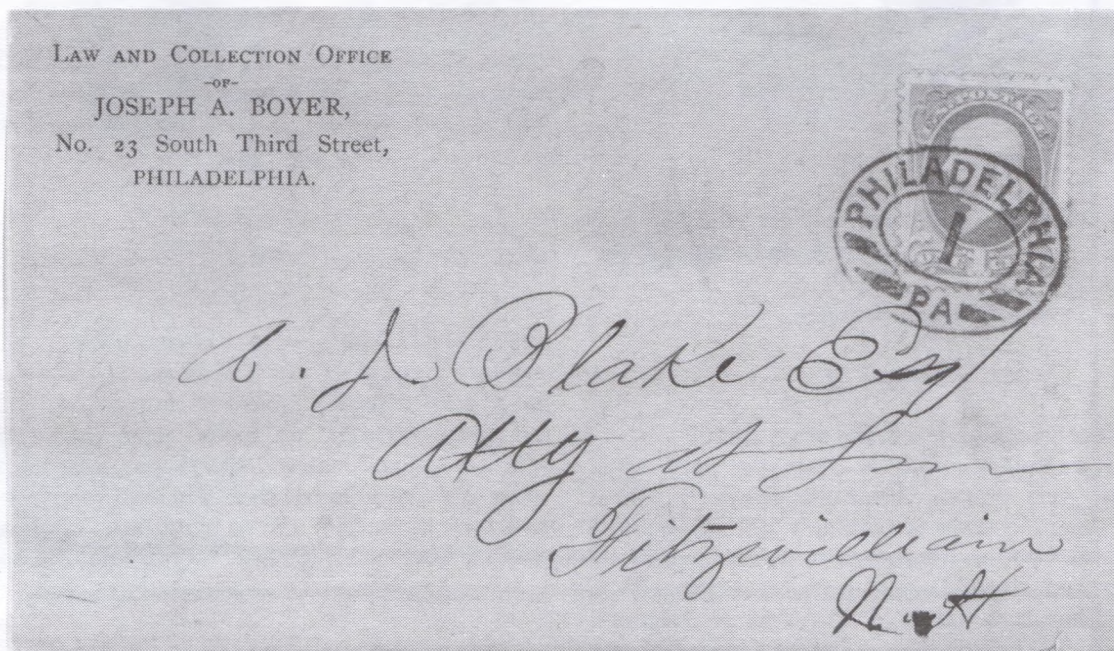 LAW AND COLLECTION OFFICE
-OF-
JOSEPH A. BOYER,
No. 23 South Third Street,
PHILADELPHIA.
PHILADELPHIA
1
PA
A. J. Blake Esq
Atty at Law
Fitzwilliam
N. H